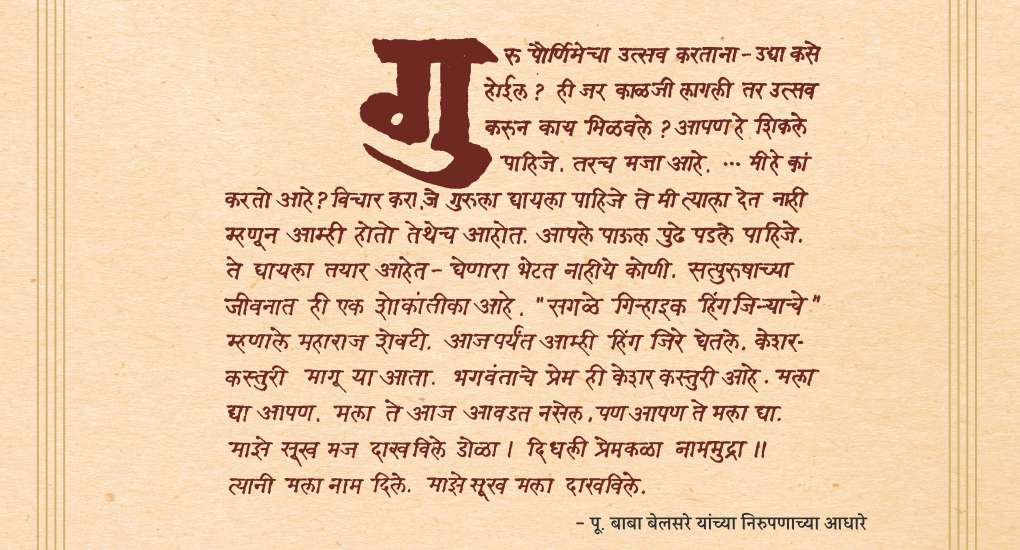 गुरु पौर्णिमेचा उत्सव करताना - उद्या कसे
होईल ? ही जर काळजी लागली तर उत्सव
करुन काय मिळवले ? आपण हे शिकले
पाहिजे. तरच मजा आहे. ... मी हे कां
करतो आहे? विचार करा. जे गुरुला द्यायला पाहिजे ते मी त्याला देत नाही
म्हणून आम्ही होतो तेथेच आहोत. आपले पाऊल पुढे पडले पाहिजे.
ते द्यायला तयार आहेत - घेणारा भेटत नाहीये कोणी. सत्पुरुषाच्या
जीवनात ही एक शोकांतीका आहे. "सगळे गिऱ्हाइक हिंग जिऱ्याचे"
म्हणाले महाराज शेवटी. आजपर्यंत आम्ही हिंग जिरे घेतले. केशर-
कस्तुरी मागू या आता. भगवंताचे प्रेम ही केशर कस्तुरी आहे. मला
द्या आपण. मला ते आज आवडत नसेल, पण आपण ते मला द्या.
माझे सूख मज दाखविले डोळा । दिधली प्रेमकळा नाममुद्रा ॥
त्यानी मला नाम दिले. माझे सूख मला दाखविले.
- पू. बाबा बेलसरे यांच्या निरुपणाच्या आधारे